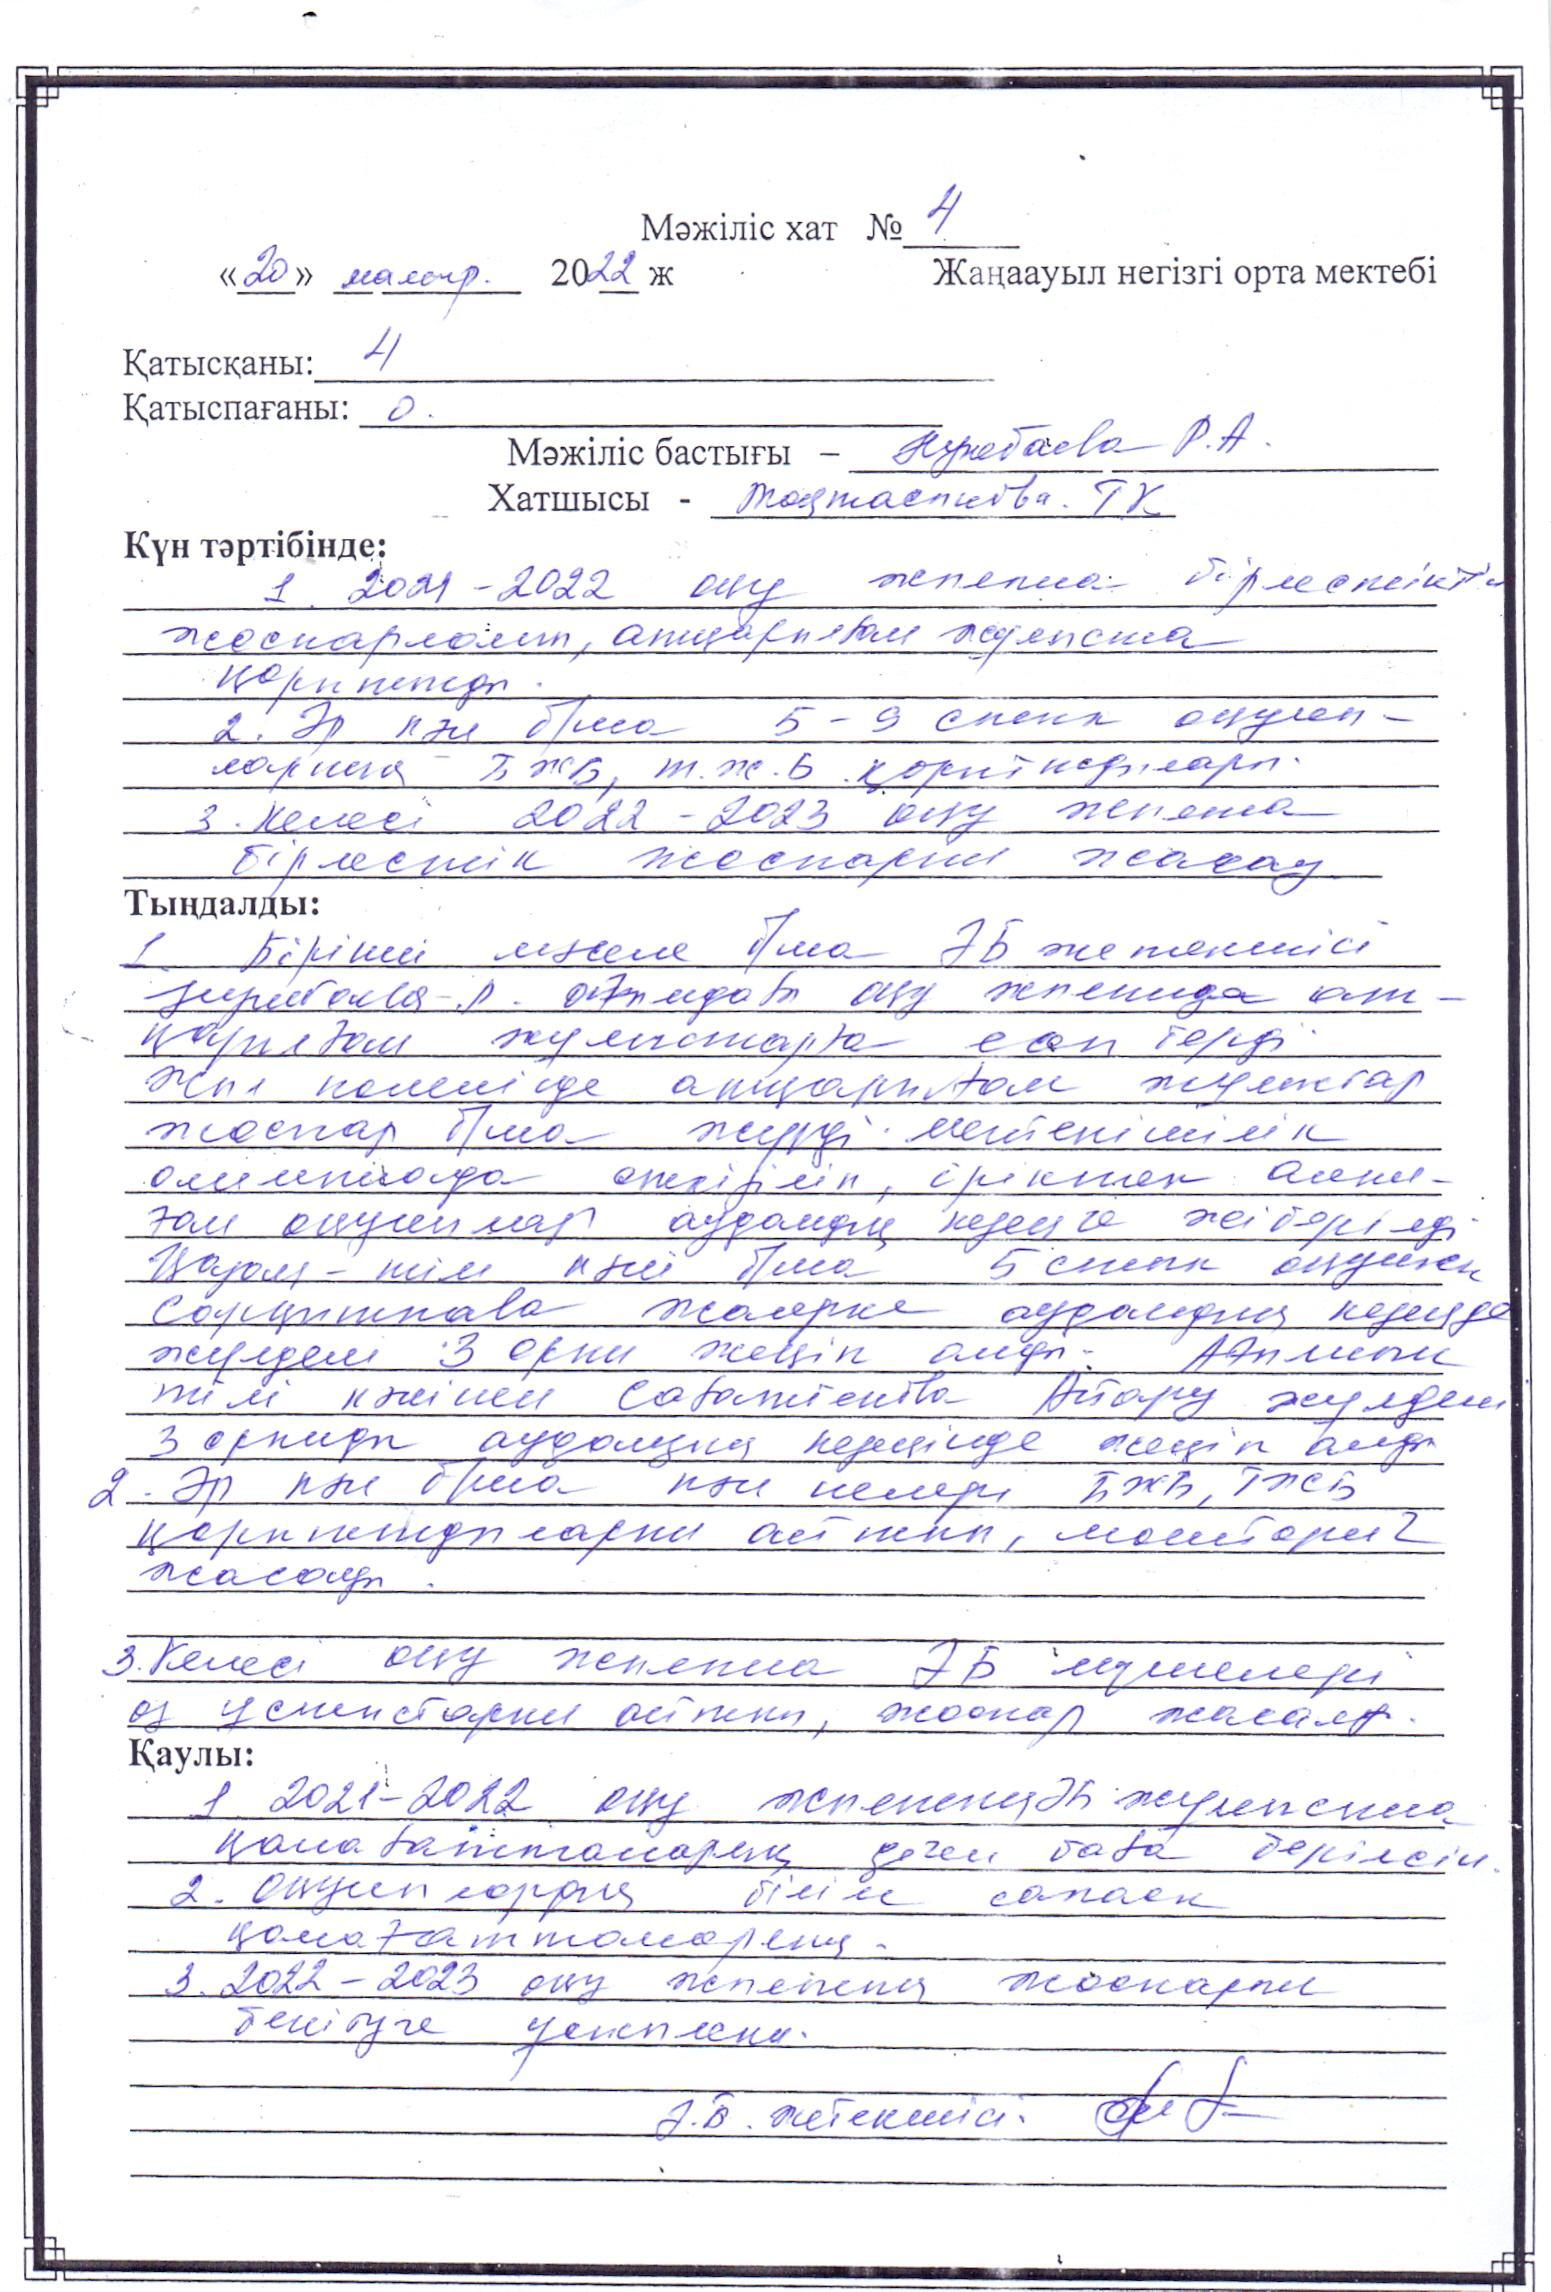 Мәжіліс хат № 4
«20» мамыр. 2022 ж Жаңаауыл негізгі орта мектебі
Қатысқаны: 4
Қатыспағаны: 0.
Мәжіліс бастығы – Р.А.
Хатшысы - Т К
Күн тәртібінде:
1. 2021-2022 оқу жылына бірлестіктің
жоспарланып, атқарылған жұмысқа
қорытынды.
2. Әр пән б/ша 5-9 сынып оқушы-
ларының БЖБ, т.ж.Б қорытындылары.
3. Келесі 2022-2023 оқу жылына
бірлестік жоспарын жасау
Тыңдалды:
1. Бірінші мәселе б/ша ӘБ жетекшісі
Р. оқу жылында ат-
қарылған жұмыстарға есеп берді.
Жыл көлемінде атқарылған жұмыстар
жоспар б/ша жүрді. Мектепішілік
олимпиада өткізіліп, іріктеп алын-
ған оқушылар аудандық кезеңге жіберілді
Қазақ-тілі пәні б/ша 5 сынып оқушысы
аудандық кезеңде
жүлделі 3 орын жеңіп алды. Ағылшын
тілі пәнінен жүлделі
3 орынды аудандық кезеңінде жеңіп алды
2. Әр пән б/ша пән иелері БЖБ, ТЖБ
қорытындыларын айтып, мониторинг
жасалды.
3. Келесі оқу жылына ӘБ мүшелері
өз ұсыныстарын айтып, жоспар жасалды.
Қаулы:
1 2021-2022 оқу жылының ӘБ жұмысына
қанағаттанарлық деген баға берілсін.
2. Оқушылардың білім сапасы
қанағаттанарлық.
3. 2022-2023 оқу жылының жоспарын
бекітуге ұсынылсын.
Ә.Б. жетекшісі: